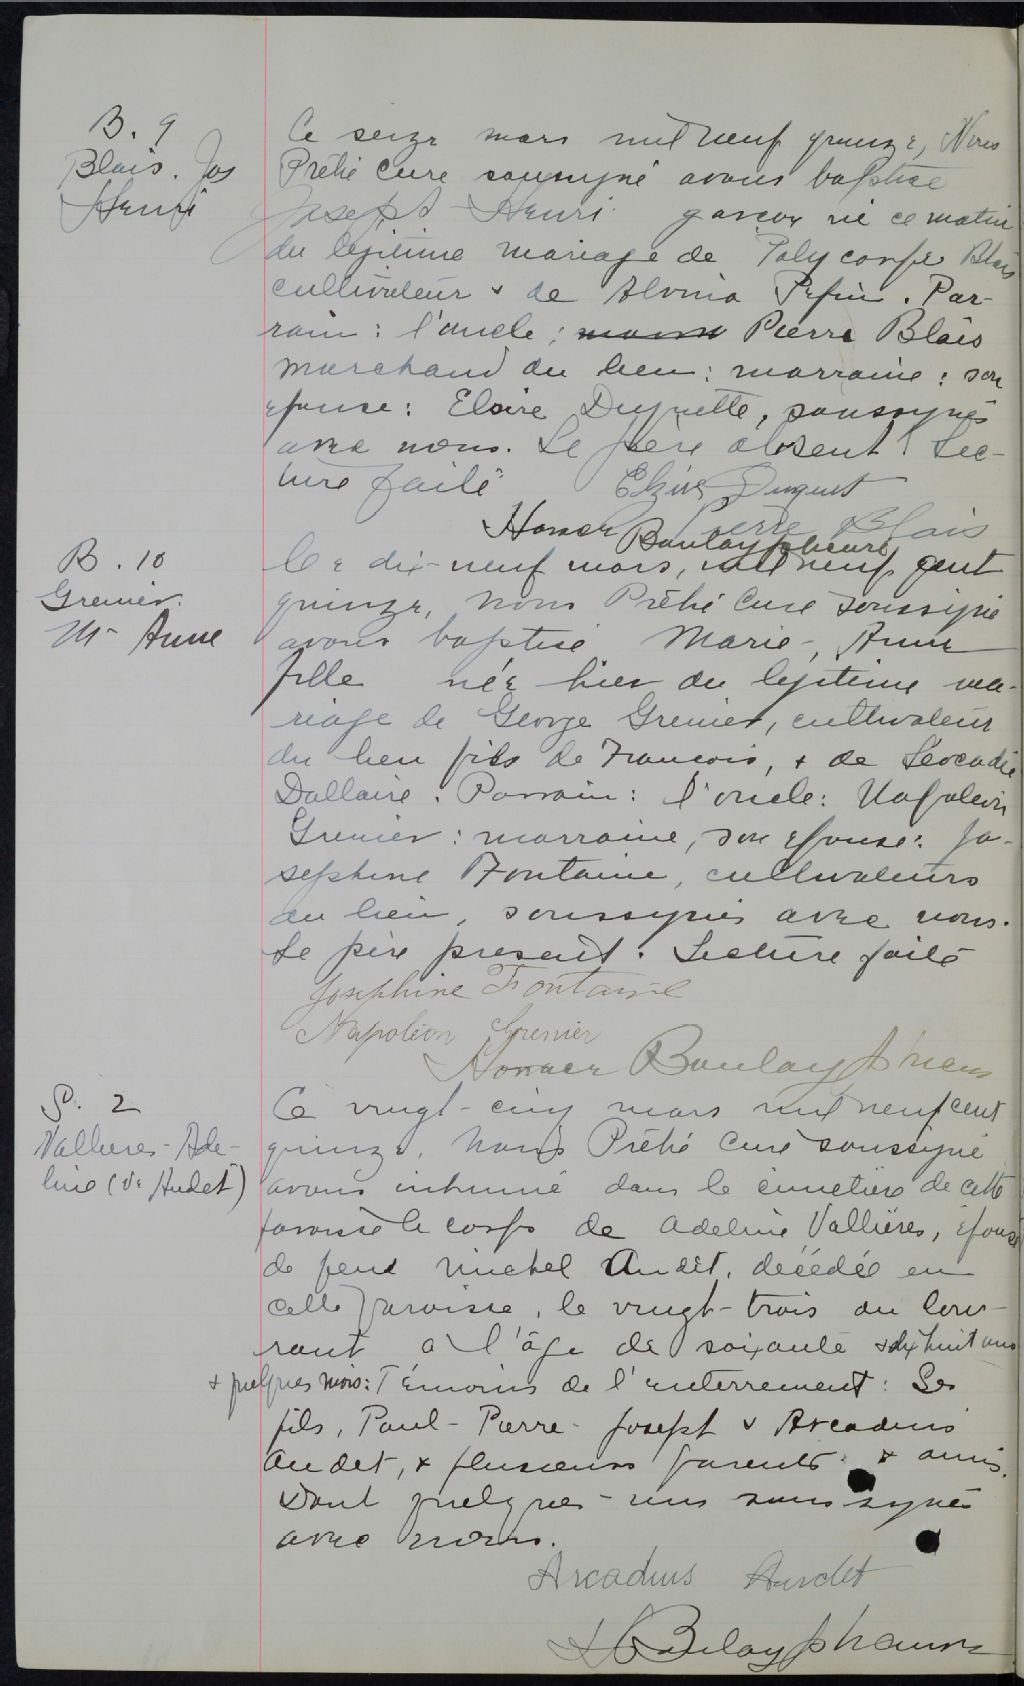 B. 9
Blais. Jos
Henri
Ce seize mars mil neuf quinze, Nous
Prêtre Curé soussigné avons baptisé
Joseph Henri garçon né ce matin
du légitime mariage de Polycarpe Blais
cultivateur & de Alvina Pepin. Par-
rain: l'oncle; Pierre Blais
marchand du lieu: marraine: son
épouse: Elzire Duquette, soussignés
avec nous. Le père absent. Lec-
ture faite
Elzire Duquet
Pierre Blais
Homer Boulay ptre curé
B. 10
Grenier.
Mie Anne
Ce dix-neuf mars, mil neuf cent
quinze, nous Prêtre Curé soussigné
avons baptisé Marie-, Anne
fille née hier du légitime ma-
riage de George Grenier, cultivateur
du lieu fils de Francois, & de Léocadie
Dallaire. Parrain: l'oncle: Napoléon
Grenier: marraine, son épouse: Jo-
sephine Fontaine, cultivateurs
du lieu, soussignés avec nous.
Le père présent. Lecture faite
Josephine Fontaine
Napoléon Grenier
Homer Boulay ptre curé
S. 2
Vallieres-Ade-
line (Ve Audet)
Ce vingt-cinq mars mil neuf cent
quinze, nous Prêtre Curé soussigné
avons inhumé dans le cimetière de cette
paroisse le corps de Adeline Vallières, épouse
de feue Michel Audet, décédée en
cette paroisse, le vingt-trois du cou-
rant à l'âge de soixante & dix huit ans
& quelques mois: Témoins de l'enterrement: Ses
fils, Paul-Pierre-Joseph & Arcadius
Audet, & plusieurs parents & amis.
Dont quelques-uns soussignés
avec nous.
Arcadius Audet
H Boulay ptre curé